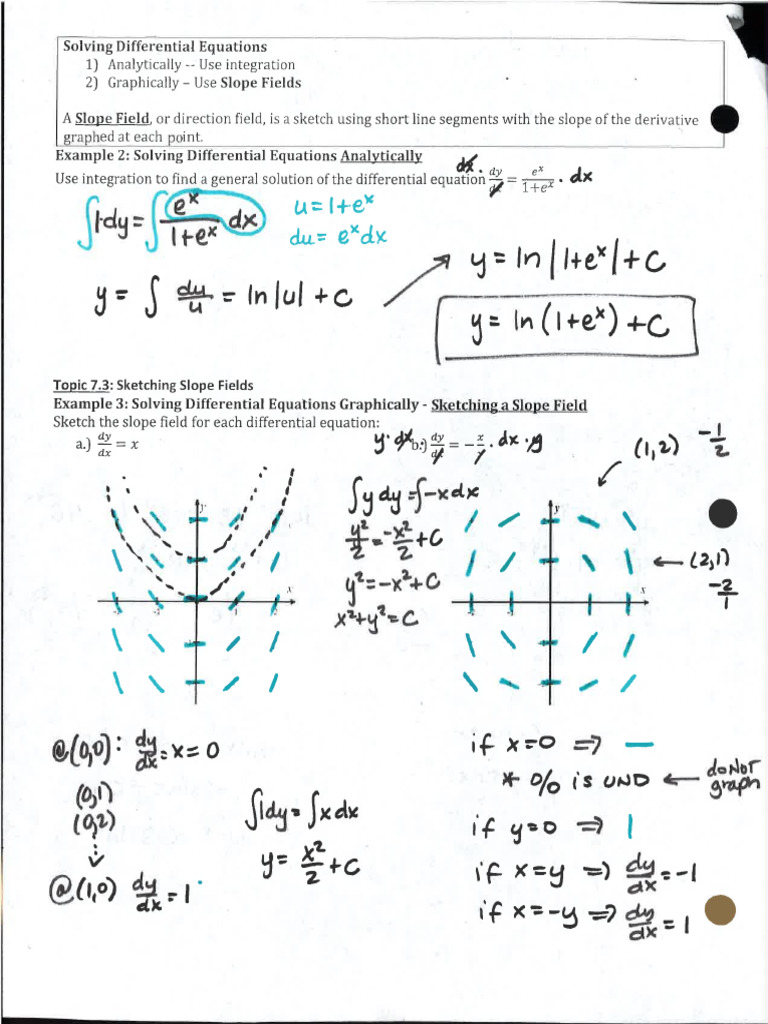 Solving Differential Equations
1) Analytically -- Use integration
2) Graphically – Use Slope Fields
A Slope Field, or direction field, is a sketch using short line segments with the slope of the derivative
graphed at each point.
Example 2: Solving Differential Equations Analytically
Use integration to find a general solution of the differential equation dx · dy/dx = e^x/(1+e^x) · dx
∫1·dy = ∫ e^x/(1+e^x) dx
u = 1+e^x
du = e^x dx
y = ∫ du/u = ln|u| + C
y = ln|1+e^x| + C
y = ln(1+e^x) + C
Topic 7.3: Sketching Slope Fields
Example 3: Solving Differential Equations Graphically - Sketching a Slope Field
Sketch the slope field for each differential equation:
a.) dy/dx = x
y · dx b.) dy/dx = -x/y · dx · y
(1,2) -1/2
y
x
∫y dy = ∫-x dx
y²/2 = -x²/2 + C
y² = -x² + C
x² + y² = C
y
x
(2,1)
-2/1
@(0,0): dy/dx = x = 0
(0,1)
(0,2)
@(1,0) dy/dx = 1
∫1dy = ∫x dx
y = x²/2 + C
if x=0 ⇒ —
* 0/0 is UND ← do NOT graph
if y=0 ⇒ |
if x=y ⇒ dy/dx = -1
if x=-y ⇒ dy/dx = 1